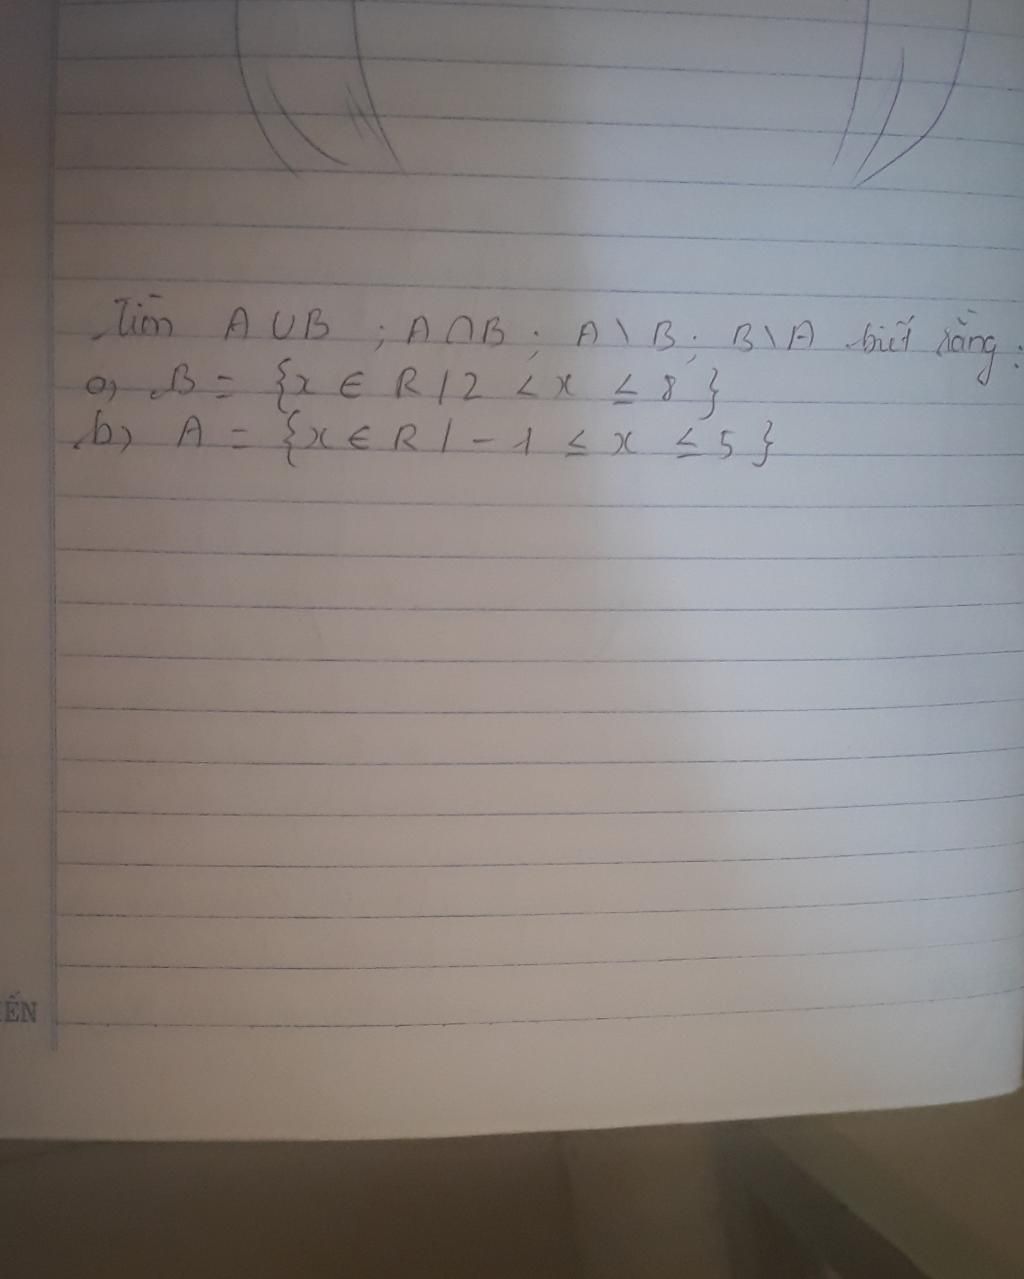 Tìm A ∪ B ; A ∩ B ; A \ B ; B \ A biết rằng :
a, B = {x ∈ R / 2 < x ≤ 8 }
b, A = {x ∈ R / - 1 ≤ x ≤ 5 }
ẾN